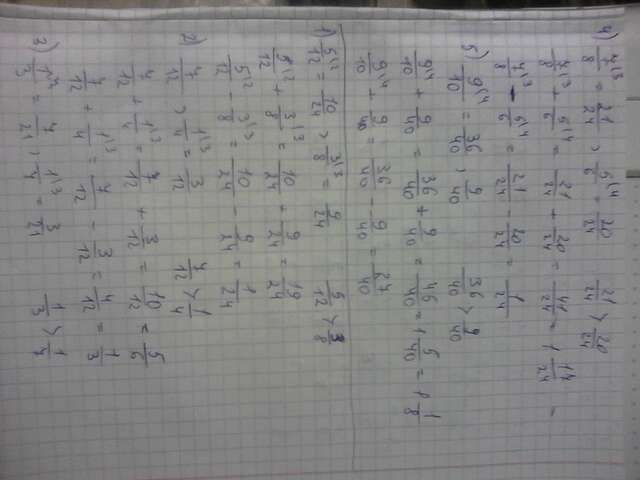 4) 7\3/8 = 21/24 , 5\4/6 = 20/24 21/24 > 20/24
7\3/8 + 5\4/6 = 21/24 + 20/24 = 41/24 = 1 17/24 =
7\3/8 - 5\4/6 = 21/24 - 20/24 = 1/24
5) 9\4/10 = 36/40 , 9/40 36/40 > 9/40
9\4/10 + 9/40 = 36/40 + 9/40 = 45/40 = 1 5/40 = 1 1/8
9\4/10 + 9/40 = 36/40 - 9/40 = 27/40
1) 5\2/12 = 10/24 , 3\3/8 = 9/24 5/12 > 3/8
5\2/12 + 3\3/8 = 10/24 + 9/24 = 19/24
5\2/12 - 3\3/8 = 10/24 - 9/24 = 1/24
2) 7/12 , 1\3/4 = 3/12 7/12 > 1/4
7/12 + 1\3/4 = 7/12 + 3/12 = 10/12 = 5/6
7/12 + 1\3/4 = 7/12 - 3/12 = 4/12 = 1/3
3) 1\7/3 = 7/21 , 1\3/7 = 3/21 1/3 > 1/7